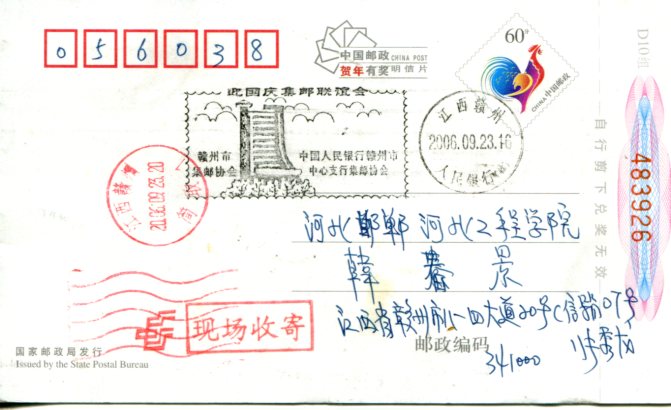 056038
中国邮政 CHINA POST
贺年有奖 明信片
60分
CHINA 中国邮政
D10组
迎国庆集邮联谊会
赣州市
集邮协会
中国人民银行赣州市
中心支行集邮协会
江西赣州
2006.09.23.16
人民银行
江西赣州
2006.09.23.20
自行剪下兑奖无效
483926
河北邯郸 河北工程学院
韩春景
江西省赣州市八一四大道20号(信箱07号
341000
邮政编码
现场收寄
国家邮政局发行
Issued by the State Postal Bureau